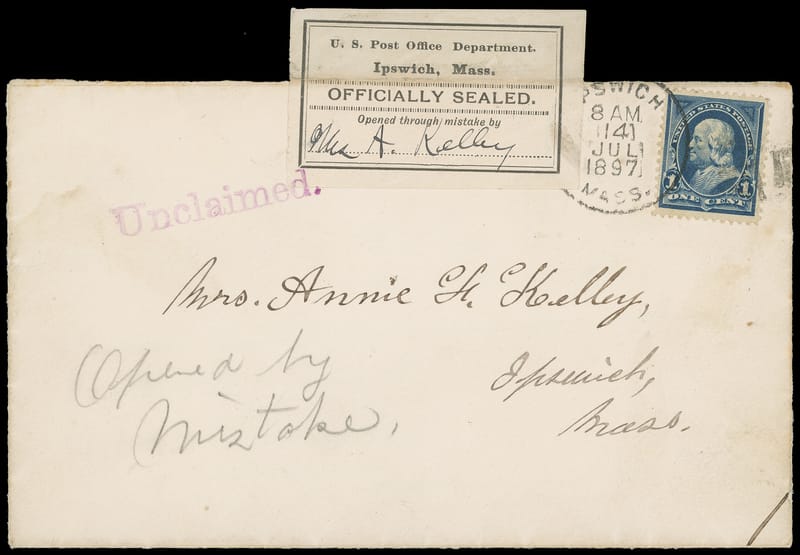 U. S. Post Office Department.
Ipswich, Mass.
OFFICIALLY SEALED.
Opened through mistake by
Mrs A. Kelley
IPSWICH
8 AM
14
JUL
1897
MASS.
UNITED STATES POSTAGE
1 1
ONE CENT
Unclaimed.
Mrs. Annie H. Kelley,
Ipswich,
Mass.
Opened by
Mistake.